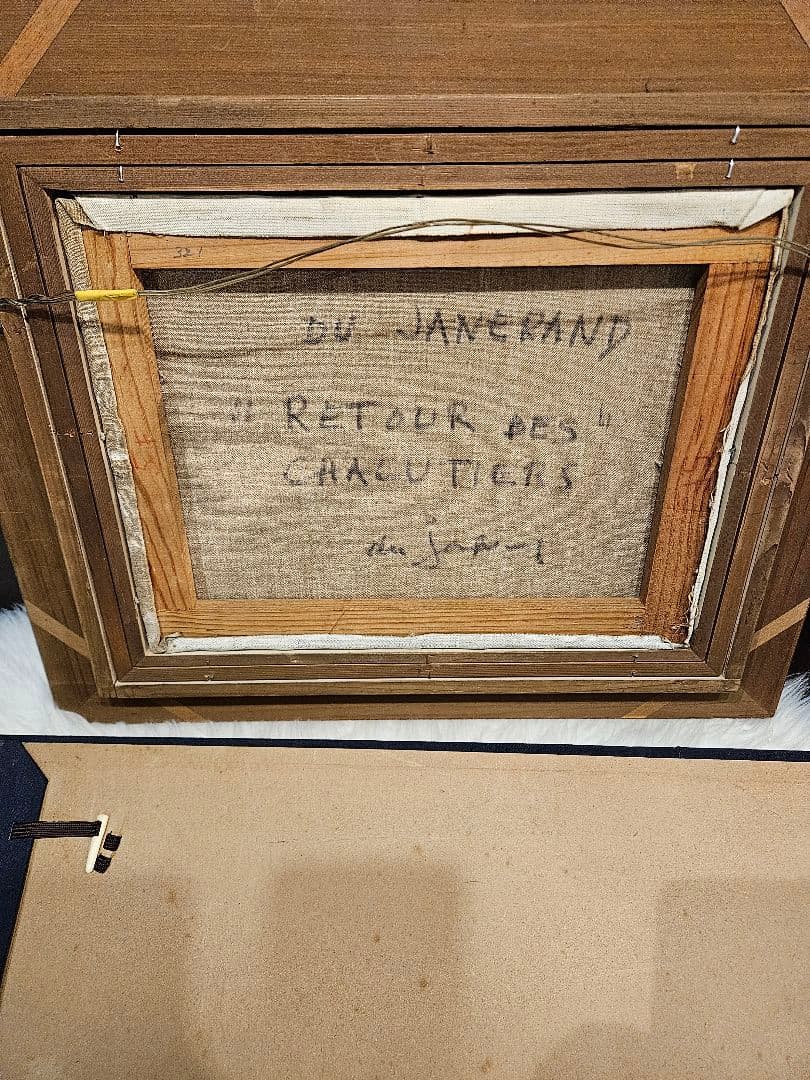 321
DU JANERAND
" RETOUR DES "
CHALUTIERS
du Jan